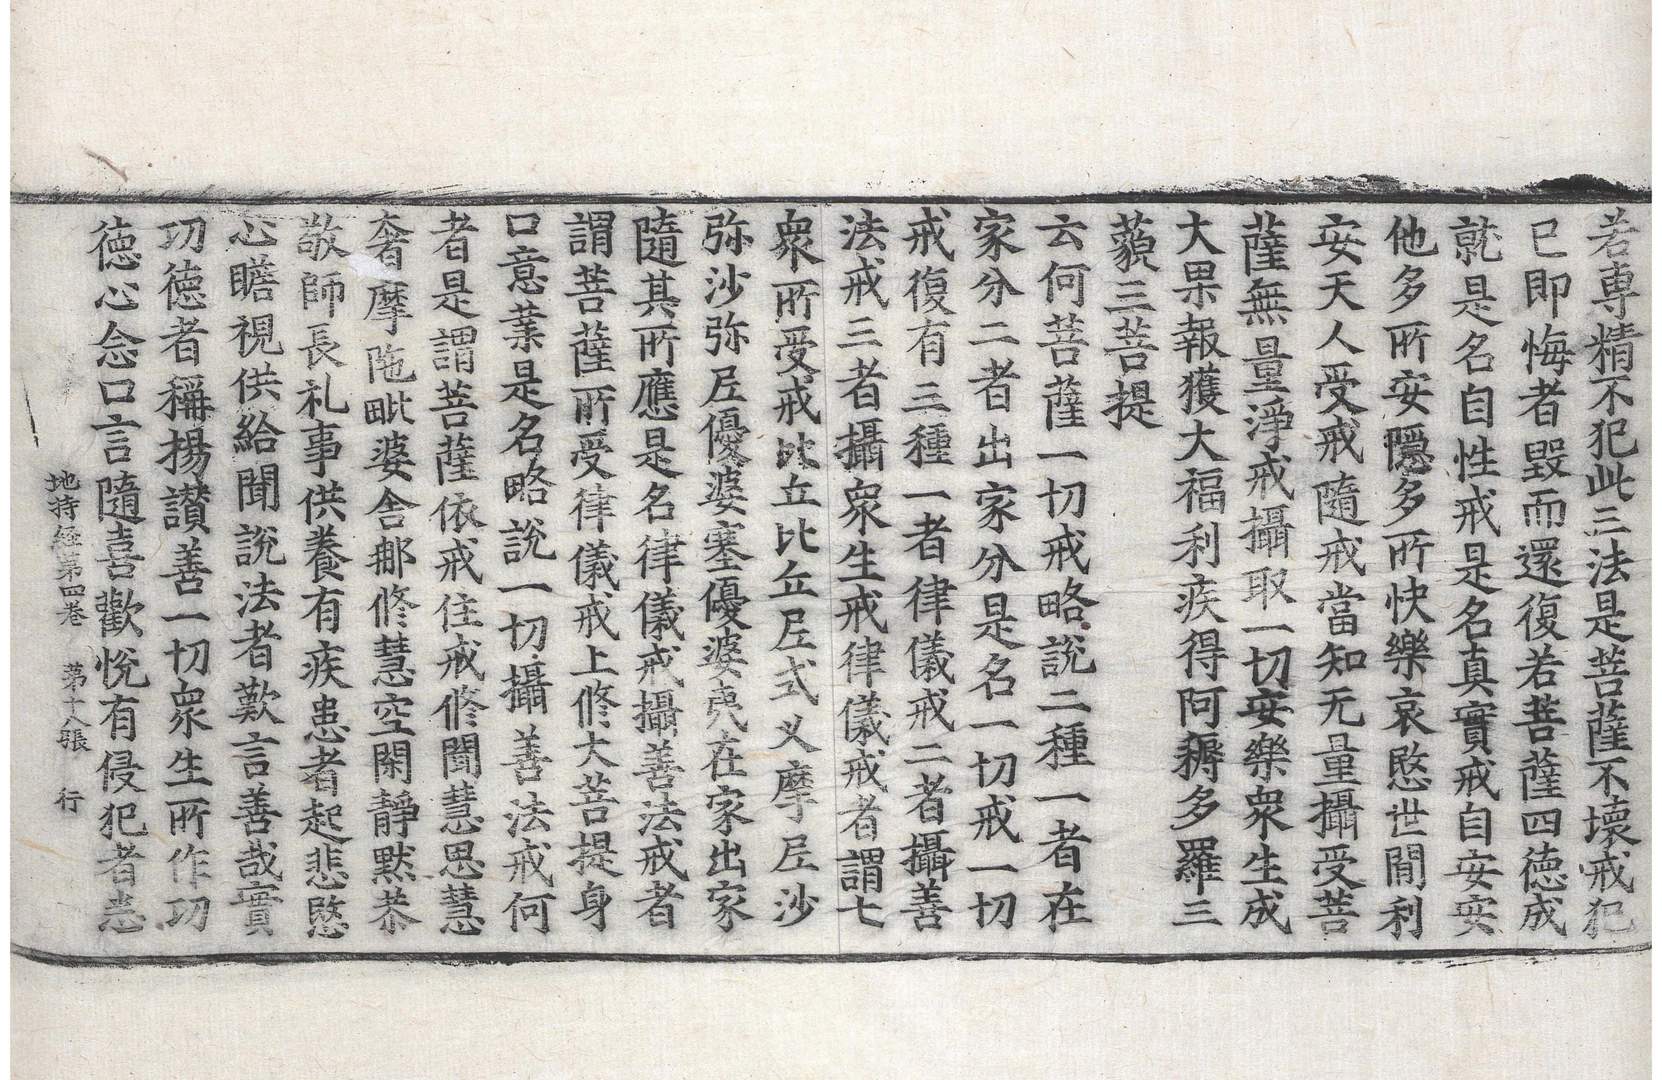 若專精不犯此三法是菩薩不壞戒犯
已即悔者毀而還復若菩薩四德成
就是名自性戒是名真實戒自安安
他多所安隱多所快樂哀愍世間利
安天人受戒隨戒當知无量攝受菩
薩無量淨戒攝取一切安樂衆生成
大果報獲大福利疾得阿耨多羅三
藐三菩提
云何菩薩一切戒略說二種一者在
家分二者出家分是名一切戒一切
戒復有三種一者律儀戒二者攝善
法戒三者攝衆生戒律儀戒者謂七
衆所受戒比丘比丘尼式叉摩尼沙
弥沙弥尼優婆塞優婆夷在家出家
隨其所應是名律儀戒攝善法戒者
謂菩薩所受律儀戒上修大菩提身
口意業是名略說一切攝善法戒何
者是謂菩薩依戒住戒修聞慧思慧
奢摩陁毗婆舍那修慧空閑靜默恭
敬師長礼事供養有疾患者起悲愍
心瞻視供給聞說法者歎言善哉實
功德者稱揚讚善一切衆生所作功
德心念口言隨喜歡悅有侵犯者悉
地持經第四卷 第十八張 行